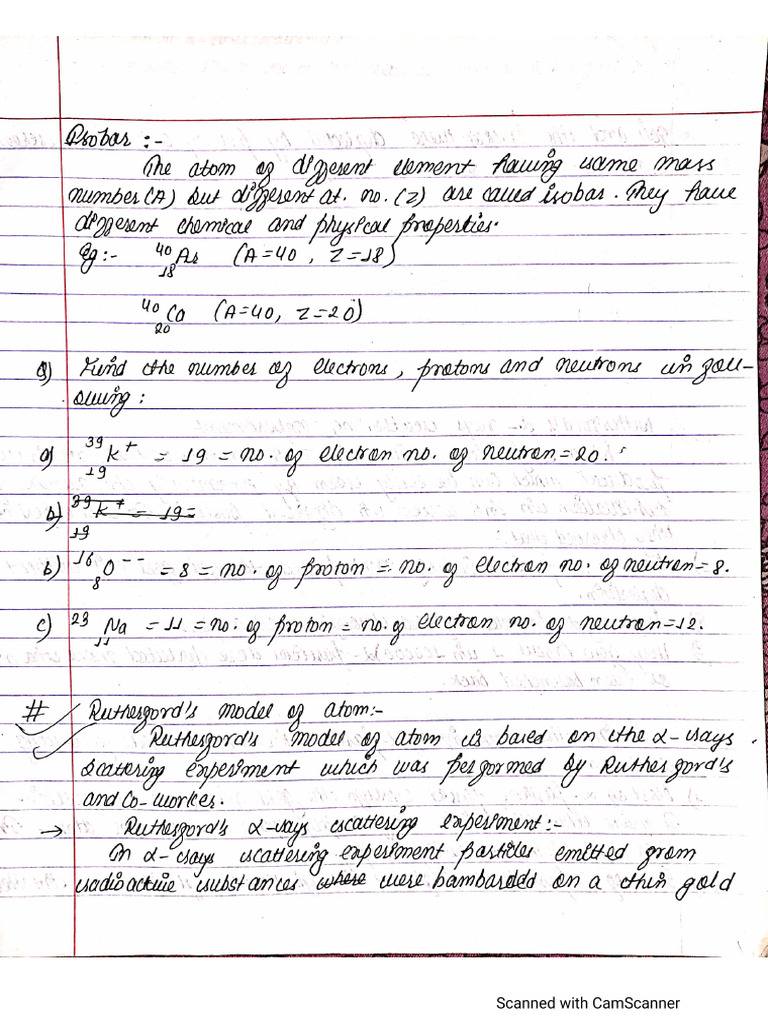 Isobar :-
The atom of different element having same mass
number (A) but different at. no. (Z) are called isobar. They have
different chemical and physical properties.
Eg :- ⁴⁰₁₈Ar (A=40 , Z=18)
⁴⁰₂₀Ca (A=40, Z=20)
Q) Find the number of electrons, protons and neutrons in foll-
owing :
a) ³⁹₁₉K⁺ = 19 = no. of electron no. of neutron = 20.
b) ³⁹₁₉K⁺ = 19 =
b) ¹⁶₈O⁻⁻ = 8 = no. of proton = no. of electron no. of neutron = 8.
c) ²³₁₁Na = 11 = no. of proton = no. of electron no. of neutron = 12.
# Rutherford's model of atom:-
Rutherford's model of atom is based on the α-rays
scattering experiment which was performed by Rutherford's
and co-workes.
→ Rutherford's α-rays scattering experiment:-
In α-rays scattering experiment particles emitted from
radioactive substances where were bambarded on a thin gold
Scanned with CamScanner